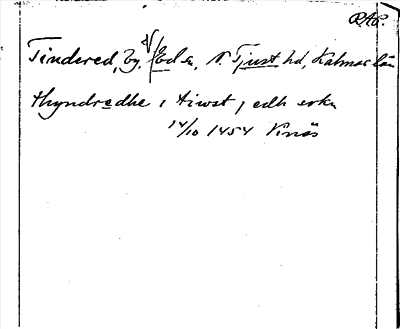 RAP.
Tindered, by, Eds sn, N. Tjust hd, Kalmar län
thyndredhe i tiwst j edh sokn
14/10 1454 Vinäs